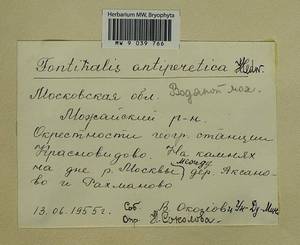 Herbarium MW, Bryophyta
MW 9 039 766
Fontinalis antipyretica Hedw.
Московская обл. Водяной мох.
Можайский р-н.
Окрестности геогр. станции
Красновидово. На камнях
на дне р. Москвы между дер. Аксаново и Рахманово
13.06.1955 г. Соб.
Опр. Н. Соколова